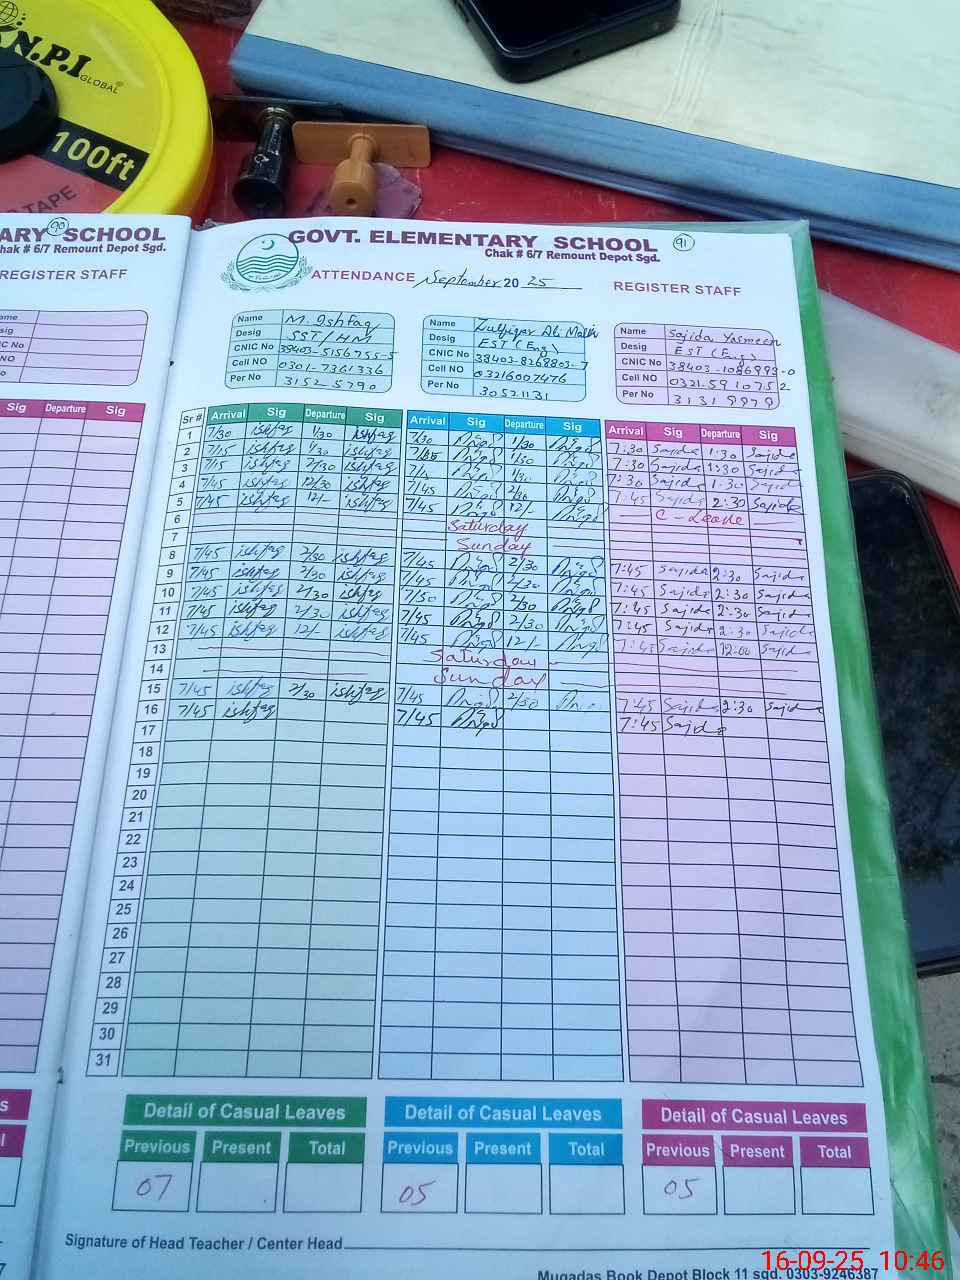 N.P.I
GLOBAL
100ft
TAPE
ARY SCHOOL
90
hak # 6/7 Remount Depot Sgd.
REGISTER STAFF
ame
esig
NIC NO
NO
o
Sig Departure Sig
GOVT. ELEMENTARY SCHOOL
91
Chak # 6/7 Remount Depot Sgd.
ATTENDANCE September 20 25 REGISTER STAFF
Name M. Ishfaq
Desig SST/HM
CNIC No 38403-5156755-5
Cell NO 0301-7361336
Per No 3152 5790
Name Zulfiqar Ali Malik
Desig EST (Eng)
CNIC No 38403-8268803-7
Cell NO 03216007476
Per No 30521131
Name Sajida Yasmeen
Desig EST (Eng)
CNIC No 38403-1086993-0
Cell NO 0321-5910752
Per No 31319979
Sr # Arrival Sig Departure Sig Arrival Sig Departure Sig Arrival Sig Departure Sig
1 7/30 ishfaq 1/30 ishfaq 7/30 1/30 7:30 Sajida 1:30 Sajida
2 7/15 ishfaq 1/30 ishfaq 1/30 7:30 Sajida 1:30 Sajida
3 7/15 ishfaq 2/30 ishfaq 1/30 7:30 Sajida 1:30 Sajida
4 7/45 ishfaq 12/30 ishfaq 7/45 7:45 Sajida 2:30 Sajida
5 7/45 ishfaq 12/- ishfaq 7/45 12/- C-Leave
6 Saturday
7 Sunday
8 7/45 ishfaq 2/30 ishfaq 7/45 2/30 7:45 Sajida 2:30 Sajida
9 7/45 ishfaq 2/30 ishfaq 7/45 2/30 7:45 Sajida 2:30 Sajida
10 7/45 ishfaq 2/30 ishfaq 7/30 2/30 7:45 Sajida 2:30 Sajida
11 7/45 ishfaq 2/30 ishfaq 7/45 2/30 7:45 Sajida 2:30 Sajida
12 7/45 ishfaq 12/- ishfaq 7/45 12/- 7:45 Sajida 12:00 Sajida
13 Saturday
14 Sunday
15 7/45 ishfaq 2/30 ishfaq 7/45 2/30 7:45 Sajida 2:30 Sajida
16 7/45 ishfaq 7/45 7:45 Sajida
17
18
19
20
21
22
23
24
25
26
27
28
29
30
31
Detail of Casual Leaves Detail of Casual Leaves Detail of Casual Leaves
Previous Present Total Previous Present Total Previous Present Total
07 05 05
Signature of Head Teacher / Center Head
Muqadas Book Depot Block 11 sgd. 0303-9246387
16-09-25 10:46